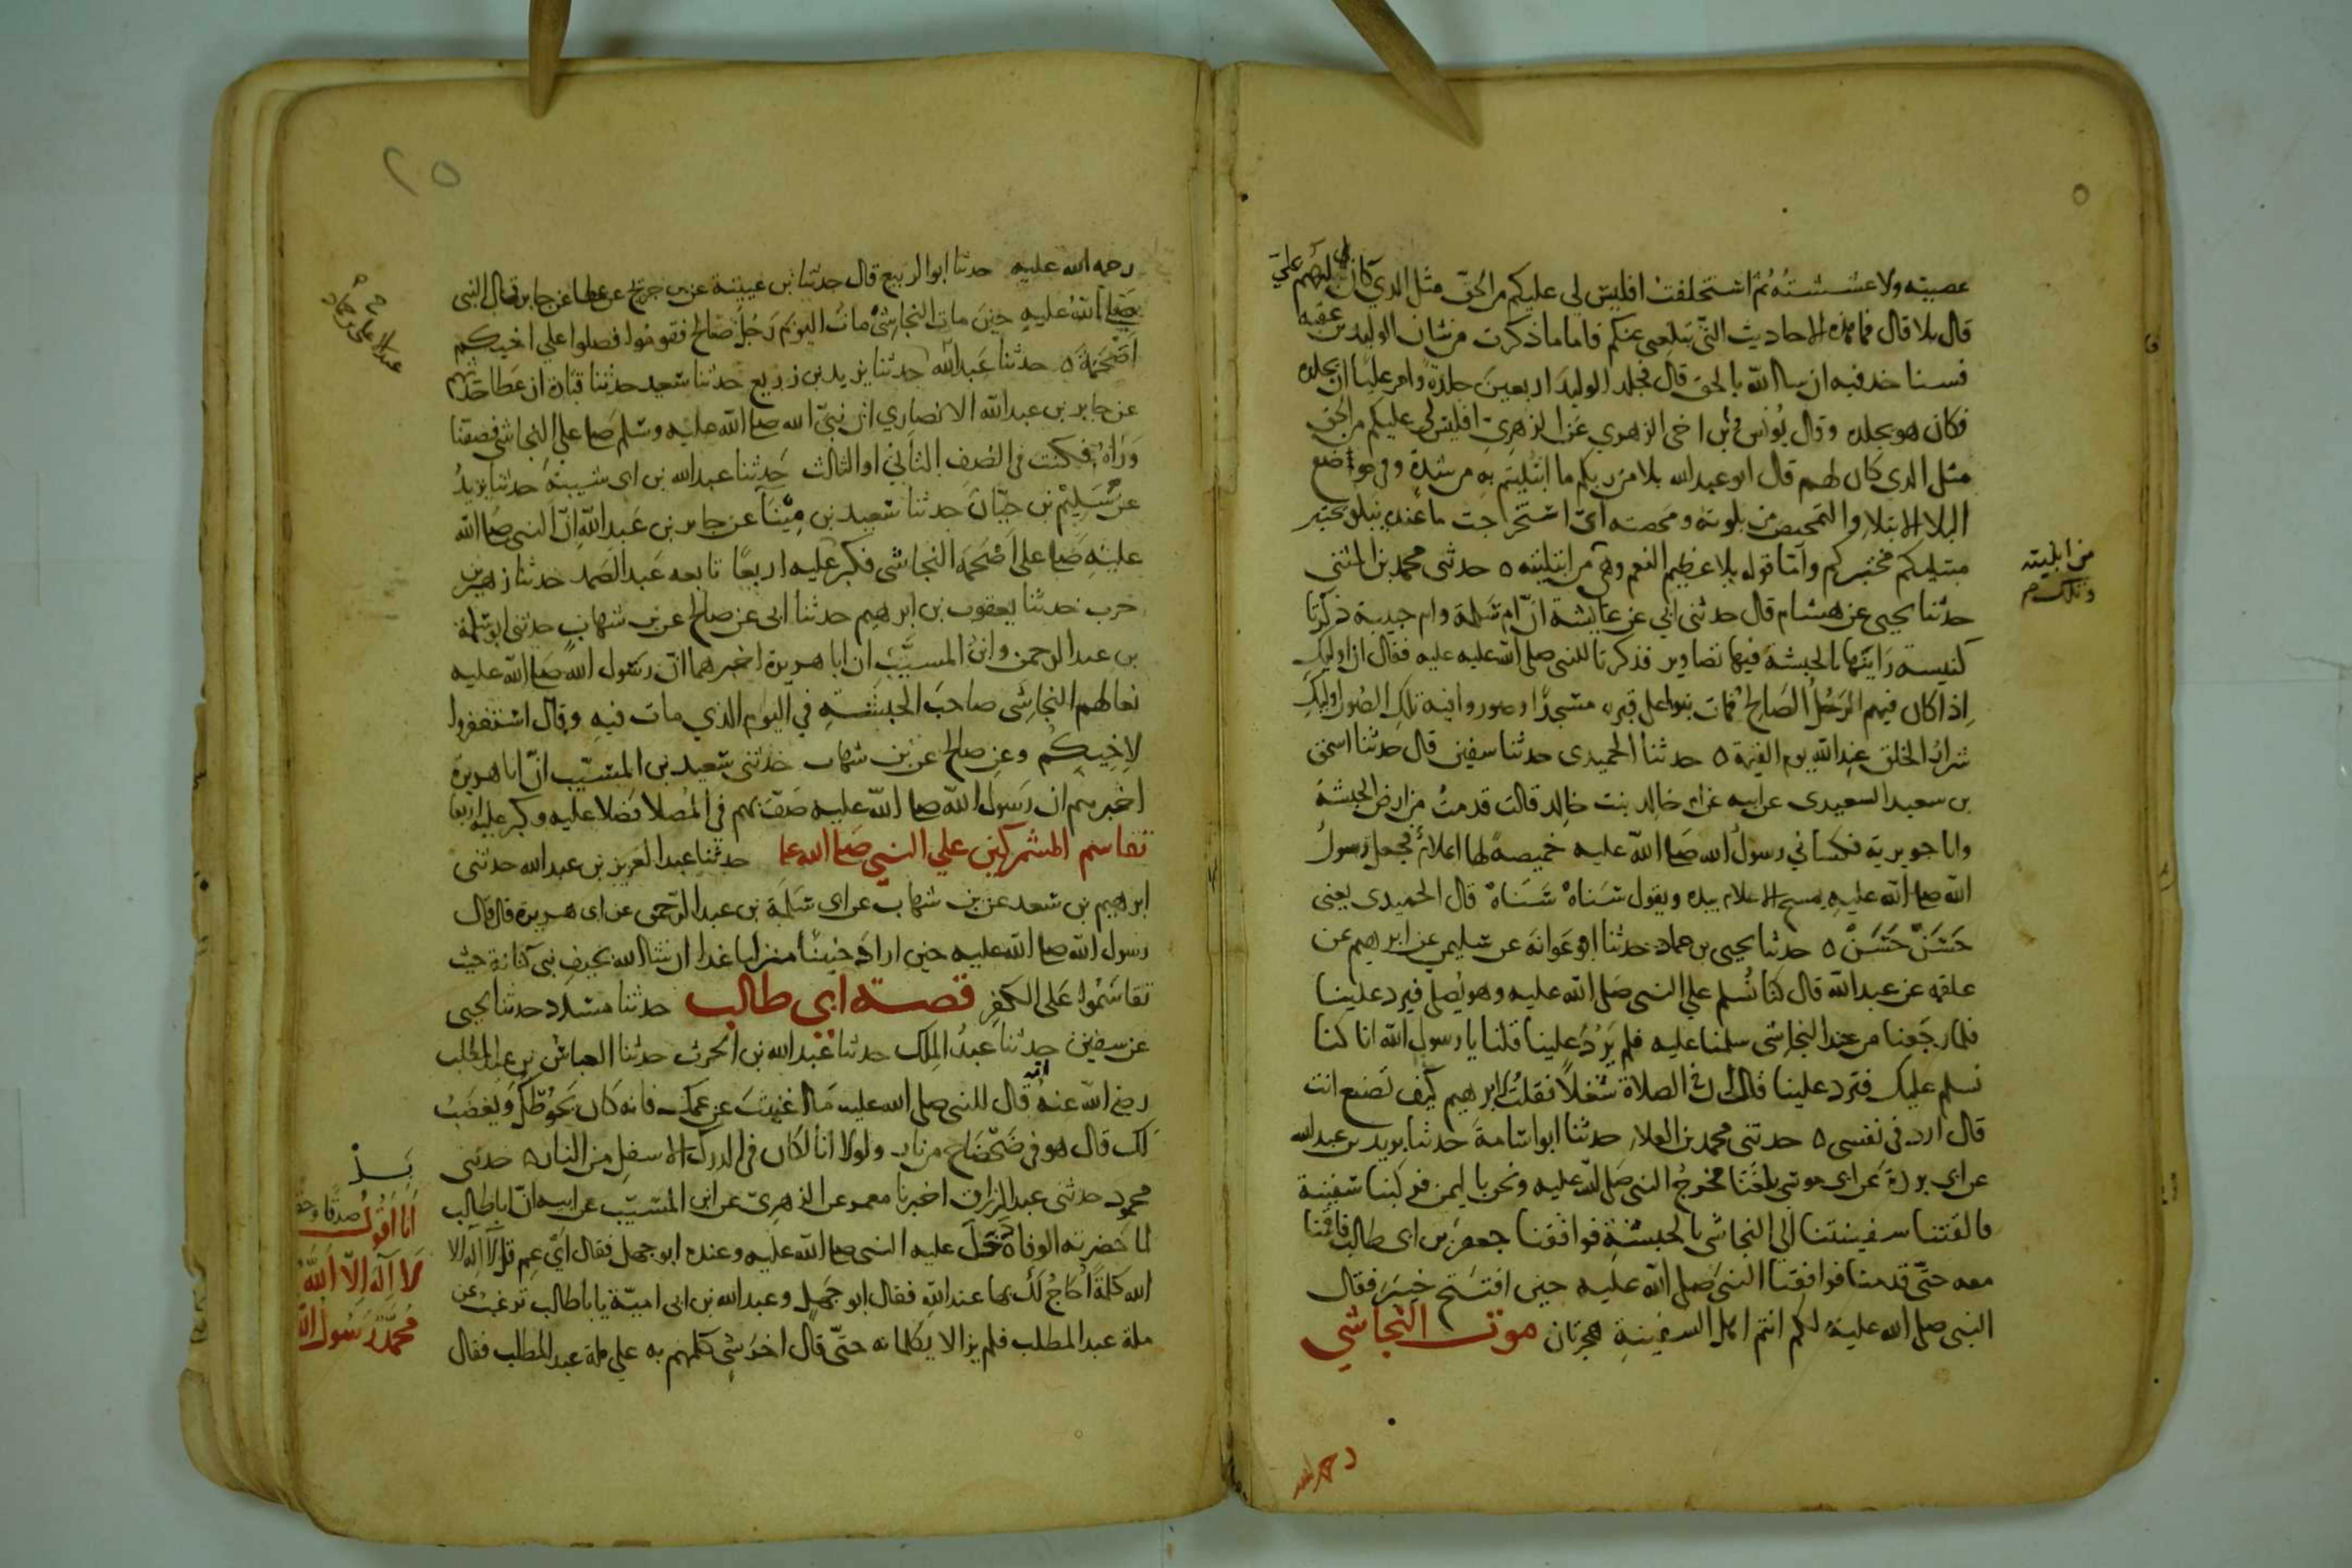 عصيته ولا غششته ثم استخلفت افليس لي عليكم من الحق مثل الذي كان لهم علي
قال بلا قال فما هذه الاحاديث التي تبلغني عنكم فاما ما ذكرت من شان الوليد بن عقبه
فسناخذ فيه ان شا الله بالحق قال فجلد الوليد اربعين جلدة وامر عليا ان يجلده
فكان هو يجلده وقال يونس وبن اخي الزهري عن الزهري افليس لي عليكم من الحق
مثل الذي كان لهم قال ابو عبد الله بلا من ربكم ما ابتليتم به من شدة وفي موضع
البلا الابتلا والتمحيص من بلوته ومحصته اي استخرجت ما عنده نبلو نختبر
مبتليكم مختبركم واما قوله بلا عظيم النعم وهي من ابتليته ه حدثني محمد بن المثنى
من ابليته
وتلك م
حدثنا يحيى عن هشام قال حدثني ابي عن عايشة ان ام سلمة وام حبيبة ذكرتا
كنيسة راينها بالحبشة فيها تصاوير فذكرتا للنبي صلى الله عليه عليه فقال ان اوليك
اذا كان فيهم الرجل الصالح فمات بنوا على قبره مسجدا وصوروا فيه تلك الصور اوليك
شرار الخلق عند الله يوم القيمة ه حدثنا الحميدي حدثنا سفين قال حدثنا اسحق
بن سعيد السعيدي عن ابيه عن ام خالد بنت خالد قالت قدمت من ارض الحبشة
وانا جويرية فكساني رسول الله صلى الله عليه خميصة لها اعلام فجعل رسول
الله صلى الله عليه يمسح الاعلام بيده ويقول سناه سناه قال الحميدي يعني
حسن حسن ه حدثنا يحيى بن حماد حدثنا ابو عوانه عن سليمن عن ابرهيم عن
علقمه عن عبد الله قال كنا نسلم علي النبي صلى الله عليه وهو يصلي فيرد علينا
فلما رجعنا من عند النجاشي سلمنا عليه فلم يرد علينا قلنا يا رسول الله انا كنا
نسلم عليك فترد علينا قال ان في الصلاة شغلا فقلت لابرهيم كيف تصنع انت
قال ارد في نفسي ه حدثني محمد بن العلاء حدثنا ابو اسامة حدثنا بريد بن عبد الله
عن ابي بردة عن ابي موسى بلغنا مخرج النبي صلى الله عليه ونحن باليمن فركبنا سفينة
فالقتنا سفينتنا الي النجاشي بالحبشة فوافقنا جعفر بن ابي طالب فاقمنا
معه حتى قدمنا فوافقنا النبي صلى الله عليه حين افتتح خيبر فقال
النبي صلى الله عليه لكم انتم اهل السفينة هجرتان موت النجاشي
رحمه الله
٢٥
رحمه الله عليه حدثنا ابو الربيع قال حدثنا بن عيينة عن بن جريج عن عطا عن جابر قال النبي
صلى الله عليه حين مات النجاشي مات اليوم رجل صالح فقوموا فصلوا علي اخيكم
اصحمة ه حدثنا عبد الله حدثنا يزيد بن زريع حدثنا سعيد حدثنا قتادة ان عطا حدثهم
عن جابر بن عبد الله الانصاري ان نبي الله صلى الله عليه وسلم صلى على النجاشي فصففنا
وراه فكنت في الصف الثاني او الثالث حدثنا عبد الله بن ابي شيبة حدثنا يزيد
عن سليم بن حيان حدثنا سعيد بن مينا عن جابر بن عبد الله ان النبي صلى الله
عليه صلى على اصحمة النجاشي فكبر عليه اربعا تابعه عبد الصمد حدثنا زهير بن
حرب حدثنا يعقوب بن ابرهيم حدثنا ابي عن صالح عن بن شهاب حدثني ابو سلمة
بن عبد الرحمن وابن المسيب ان ابا هريرة اخبرهما ان رسول الله صلى الله عليه
نعا لهم النجاشي صاحب الحبشة في اليوم الذي مات فيه وقال استغفروا
لاخيكم وعن صالح عن بن شهاب حدثني سعيد بن المسيب ان ابا هريرة
اخبرهم ان رسول الله صلى الله عليه صف بهم في المصلا فصلا عليه وكبر عليه اربعا
تقاسم المشركين علي النبي صلى الله علـ حدثنا عبد العزيز بن عبد الله حدثني
ابرهيم بن سعد عن بن شهاب عن ابي سلمة بن عبد الرحمن عن ابي هريرة قال قال
رسول الله صلى الله عليه حين اراد حنينا منزلنا غدا ان شا الله بخيف بني كنانة حيث
تقاسموا على الكفر قصة ابي طالب حدثنا مسدد حدثنا يحيى
عن سفين حدثنا عبد الملك حدثنا عبد الله بن الحرث حدثنا العباس بن عبد المطلب
رضي الله عنه انه قال للنبي صلى الله عليه ما اغنيت عن عمك فانه كان يحوطك ويغضب
لك قال هو في ضحضاح من نار ولولا انا لكان في الدرك الاسفل من النار ه حدثني
محمود حدثني عبد الرزاق اخبرنا معمر عن الزهري عن ابن المسيب عن ابيه ان ابا طالب
لما حضرته الوفاة دخل عليه النبي صلى الله عليه وعنده ابو جهل فقال اي عم قل لا اله الا
الله كلمة احاج لك بها عند الله فقال ابو جهل وعبد الله بن ابي امية يا با طالب ترغب عن
ملة عبد المطلب فلم يزالا يكلمانه حتى قال اخر شي كلمهم به علي ملة عبد المطلب فقال
انا اقول صدقا وحقا
لا اله الا الله
محمد رسول الله